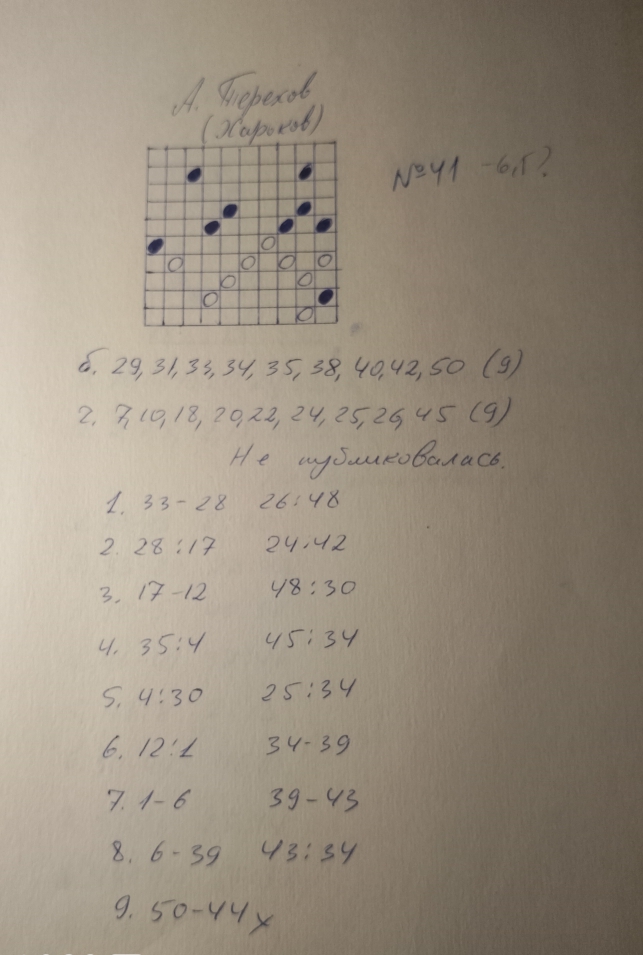 А. Терехов
(Харьков)
№41 -6,5?
б. 29, 31, 33, 34, 35, 38, 40, 42, 50 (9)
ч. 7, 10, 18, 20, 22, 24, 25, 26, 45 (9)
Не публиковалась.
1. 33-28 26:48
2. 28:17 24:42
3. 17-12 48:30
4. 35:4 45:34
5. 4:30 25:34
6. 12:1 34-39
7. 1-6 39-43
8. 6-39 43:34
9. 50-44x